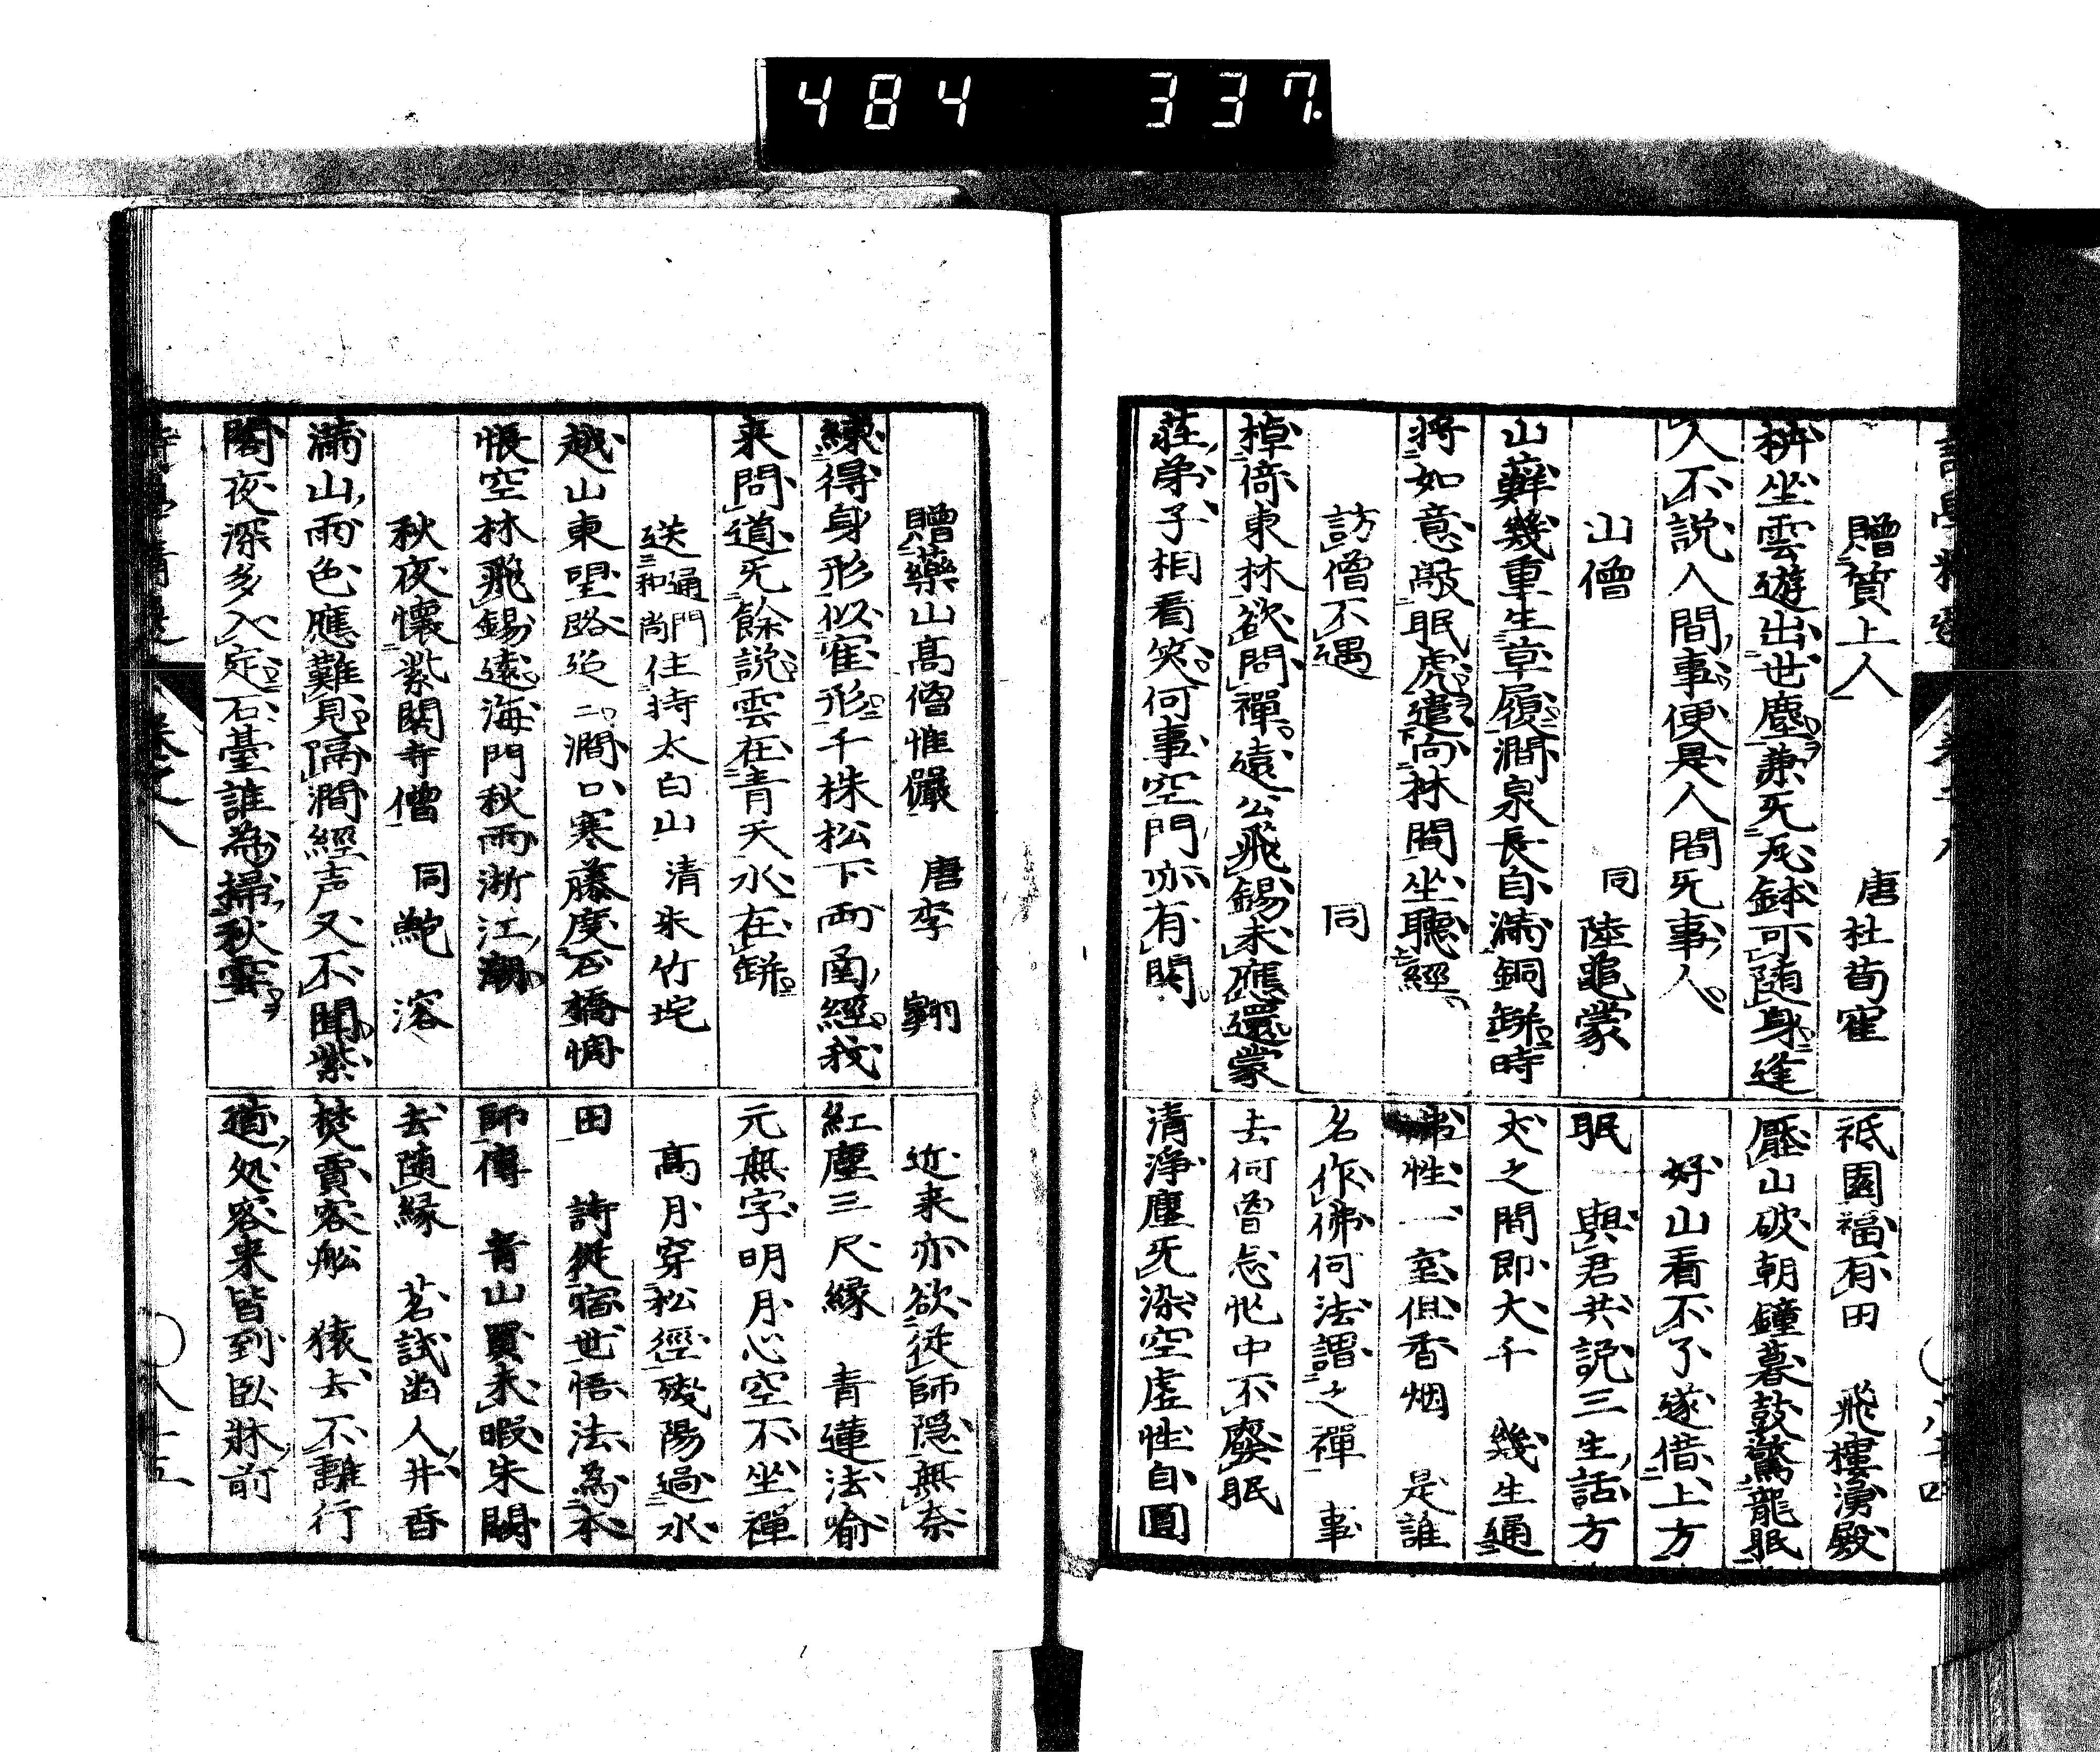 詩學精選 卷之八 八十四
贈質上人 唐杜荀寉
枿坐雲遊出世塵兼无瓶鉢可随身逢
人不説人間事便是人間无事人
山僧 同 陸龜蒙
山蘚幾重生草履澗泉長自満銅缾時
将如意敲眠虎遣向林間坐聴經
訪僧不遇 同
棹倚東林欲問禪遠公飛錫未應還蒙
莊弟子相看笑何事空門亦有関
祗園福有田 飛樓湧殿
壓山破朝鐘暮鼓驚龍眠
好山看不了遂借上方
眠 與君共説三生話方
丈之間即大千 幾生通
性一室但香烟 是誰
名作佛何法謂之禪 事
去何曾忘忙中不廢眠
清淨塵无染空虚性自圓
贈藥山高僧惟儼 唐李翱
練得身形似寉形千株松下両函經我
来問道无餘説雲在青天水在缾
送通門和尚住持太白山 清朱竹垞
越山東望路迢〻澗口寒藤度石橋惆
悵空林飛錫遠海門秋雨浙江潮
秋夜懐紫閣寺僧 同鮑溶
満山雨色應難見隔澗經声又不聞紫
閣夜深多入定石臺誰為掃秋雲
近来亦欲従師隠無奈
紅塵三尺縁 青蓮法喩
元無字明月心空不坐禪
高月穿松徑残陽過水
田 詩従宿世悟法為本
師傳 青山買未暇朱閣
去随縁 茗試幽人井香
焚賈客舩 猿去不離行
道処客来皆到臥牀前
詩學精選 卷之八 八十五
484 337.